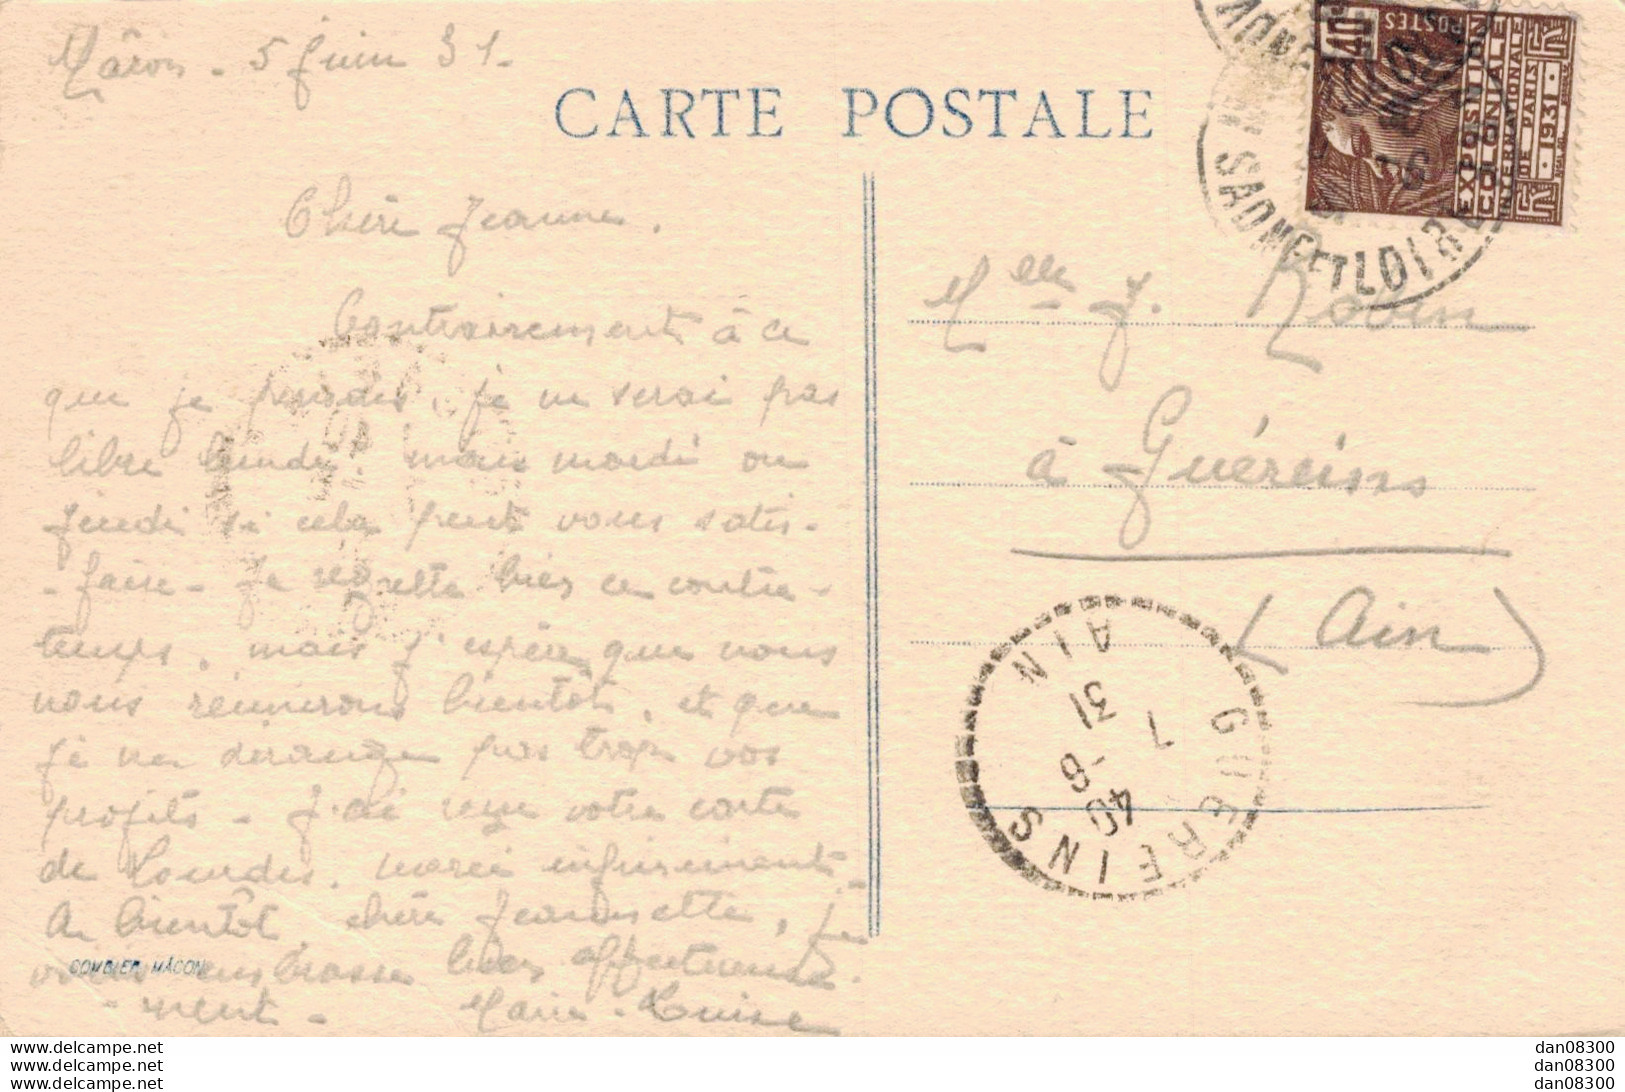 Mâcon - 5 Juin 31.
CARTE POSTALE
Chère Jeanne.
Contrairement à ce
que je pensais, je ne serai pas
libre lundi. mais mardi ou
jeudi si cela peut vous satis-
-faire - Je regrette bien ce contre-
temps, mais j'espère que nous
nous réunirons bientôt, et que
je ne dérange pas trop vos
projets - J'ai reçu votre carte
de Lourdes, merci infiniment -
A bientôt, chère Jeannette, je
vous embrasse bien affectueuse-
-ment - Marie-Louise
COMBIER MÂCON
Melle J. Robin
à Guéreins
(Ain)
POSTES
40c
EXPOSITION
COLONIALE
INTERNATIONALE
DE PARIS
1931
SAONE ET LOIRE
GUEREINS
AIN
7 40
7 -6
31
www.delcampe.net
www.delcampe.net
www.delcampe.net
dan08300
dan08300
dan08300